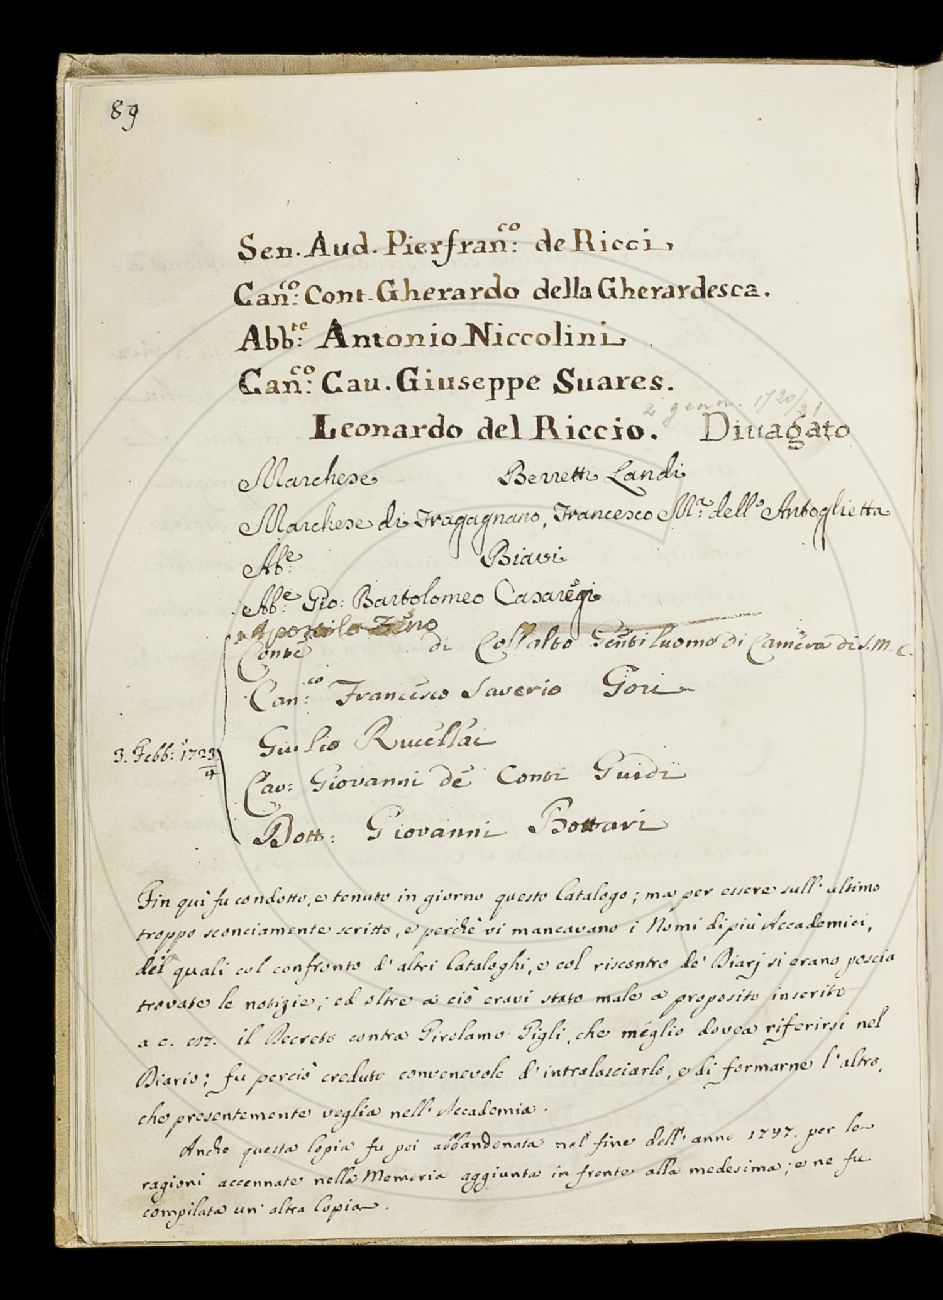 89
Sen. Aud. Pierfran.co de Ricci.
Can.co Cont. Gherardo della Gherardesca.
Abb.te Antonio Niccolini.
Can.co Cau. Giuseppe Suares.
2 genn. 1720/21
Leonardo del Riccio. Divagato
Marchese Berretti Landi
Marchese di Fragagnano, Francesco M.a dell'Antoglietta
Ab.e Biavi
Ab.e Gio: Bartolomeo Casaregi
Apostolo Zeno
Conte di Collalto Gentiluomo di Camera di S. M. C.
Can.co Francesco Saverio Gori
Giulio Rucellai
3. Febb.o 1723/4
Cav: Giovanni de' Conti Guidi
Dott: Giovanni Bottari
Fin quì fu condotto, e tenuto in giorno questo Catalogo; ma per essere sull' ultimo
troppo sconciamente scritto, e perchè vi mancavano i Nomi di più Accademici,
dei quali col confronto d'altri Cataloghi, e col riscontro de' Diarj si erano poscia
trovate le notizie; ed oltre a ciò eravi stato male a proposito inserito
a c. il Decreto contra Girolamo Gigli, che meglio dovea riferirsi nel
Diario; fu perciò creduto convenevole d'intralasciarlo, e di formarne l'altro,
che presentemente veglia nell' Accademia.
Anche questa Copia fu poi abbandonata nel fine dell' anno 1747. per le
ragioni accennate nella Memoria aggiunta in fronte alla medesima; e ne fu
compilata un' altra Copia.